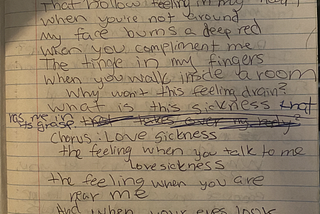 That hollow feeling in my
when you're not around
My face burns a deep red
when you compliment me
The tingle in my fingers
When you walk inside a room
Why won't this feeling drain?
what is this sickness that
has me in
its grasp. that takes over my body?
Chorus: Love sickness
the feeling when you talk to me
Lovesickness
the feeling when you are
near me
And when your eyes look